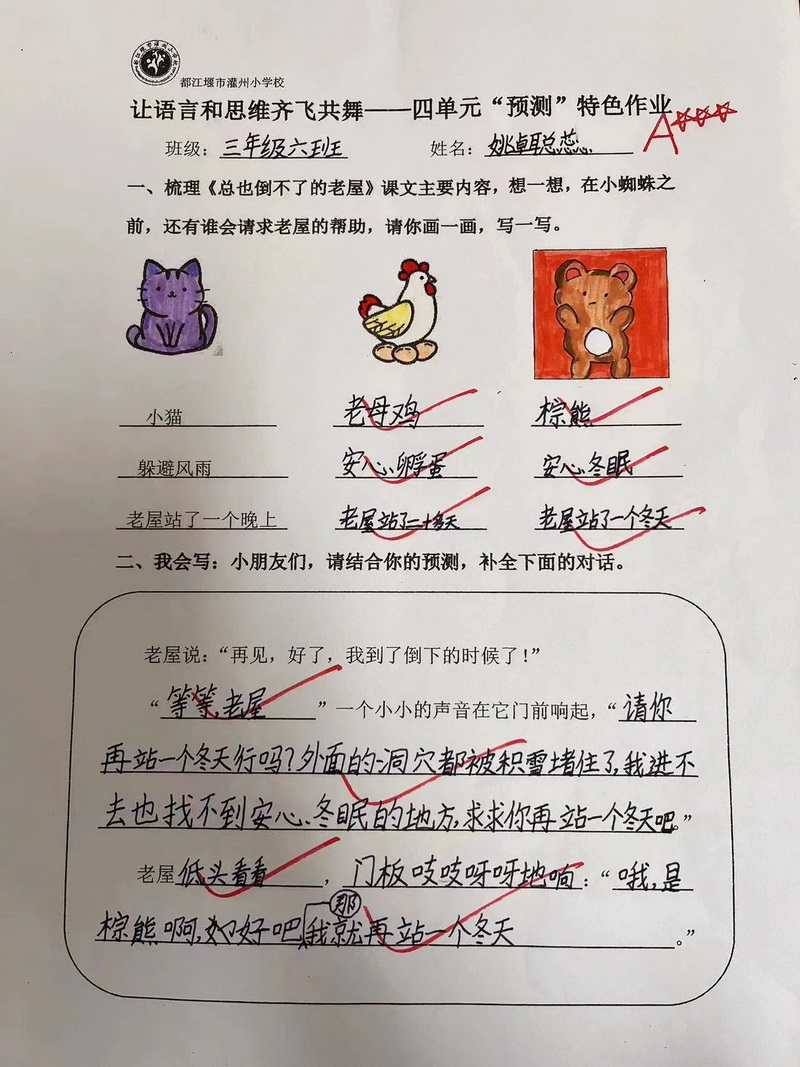 都江堰市灌州小学校
让语言和思维齐飞共舞——四单元“预测”特色作业
A
班级：三年级六班 姓名：姚卓聪蕊
一、梳理《总也倒不了的老屋》课文主要内容，想一想，在小蜘蛛之
前，还有谁会请求老屋的帮助，请你画一画，写一写。
小猫 老母鸡 棕熊
躲避风雨 安心孵蛋 安心冬眠
老屋站了一个晚上 老屋站了二十多天 老屋站了一个冬天
二、我会写：小朋友们，请结合你的预测，补全下面的对话。
老屋说：“再见，好了，我到了倒下的时候了！”
“等等，老屋”一个小小的声音在它门前响起，“请你
再站一个冬天行吗？外面的洞穴都被积雪堵住了，我进不
去也找不到安心冬眠的地方，求求你再站一个冬天吧。”
老屋低头看看，门板吱吱呀呀地响：“哦，是
棕熊啊，好吧那我就再站一个冬天。”